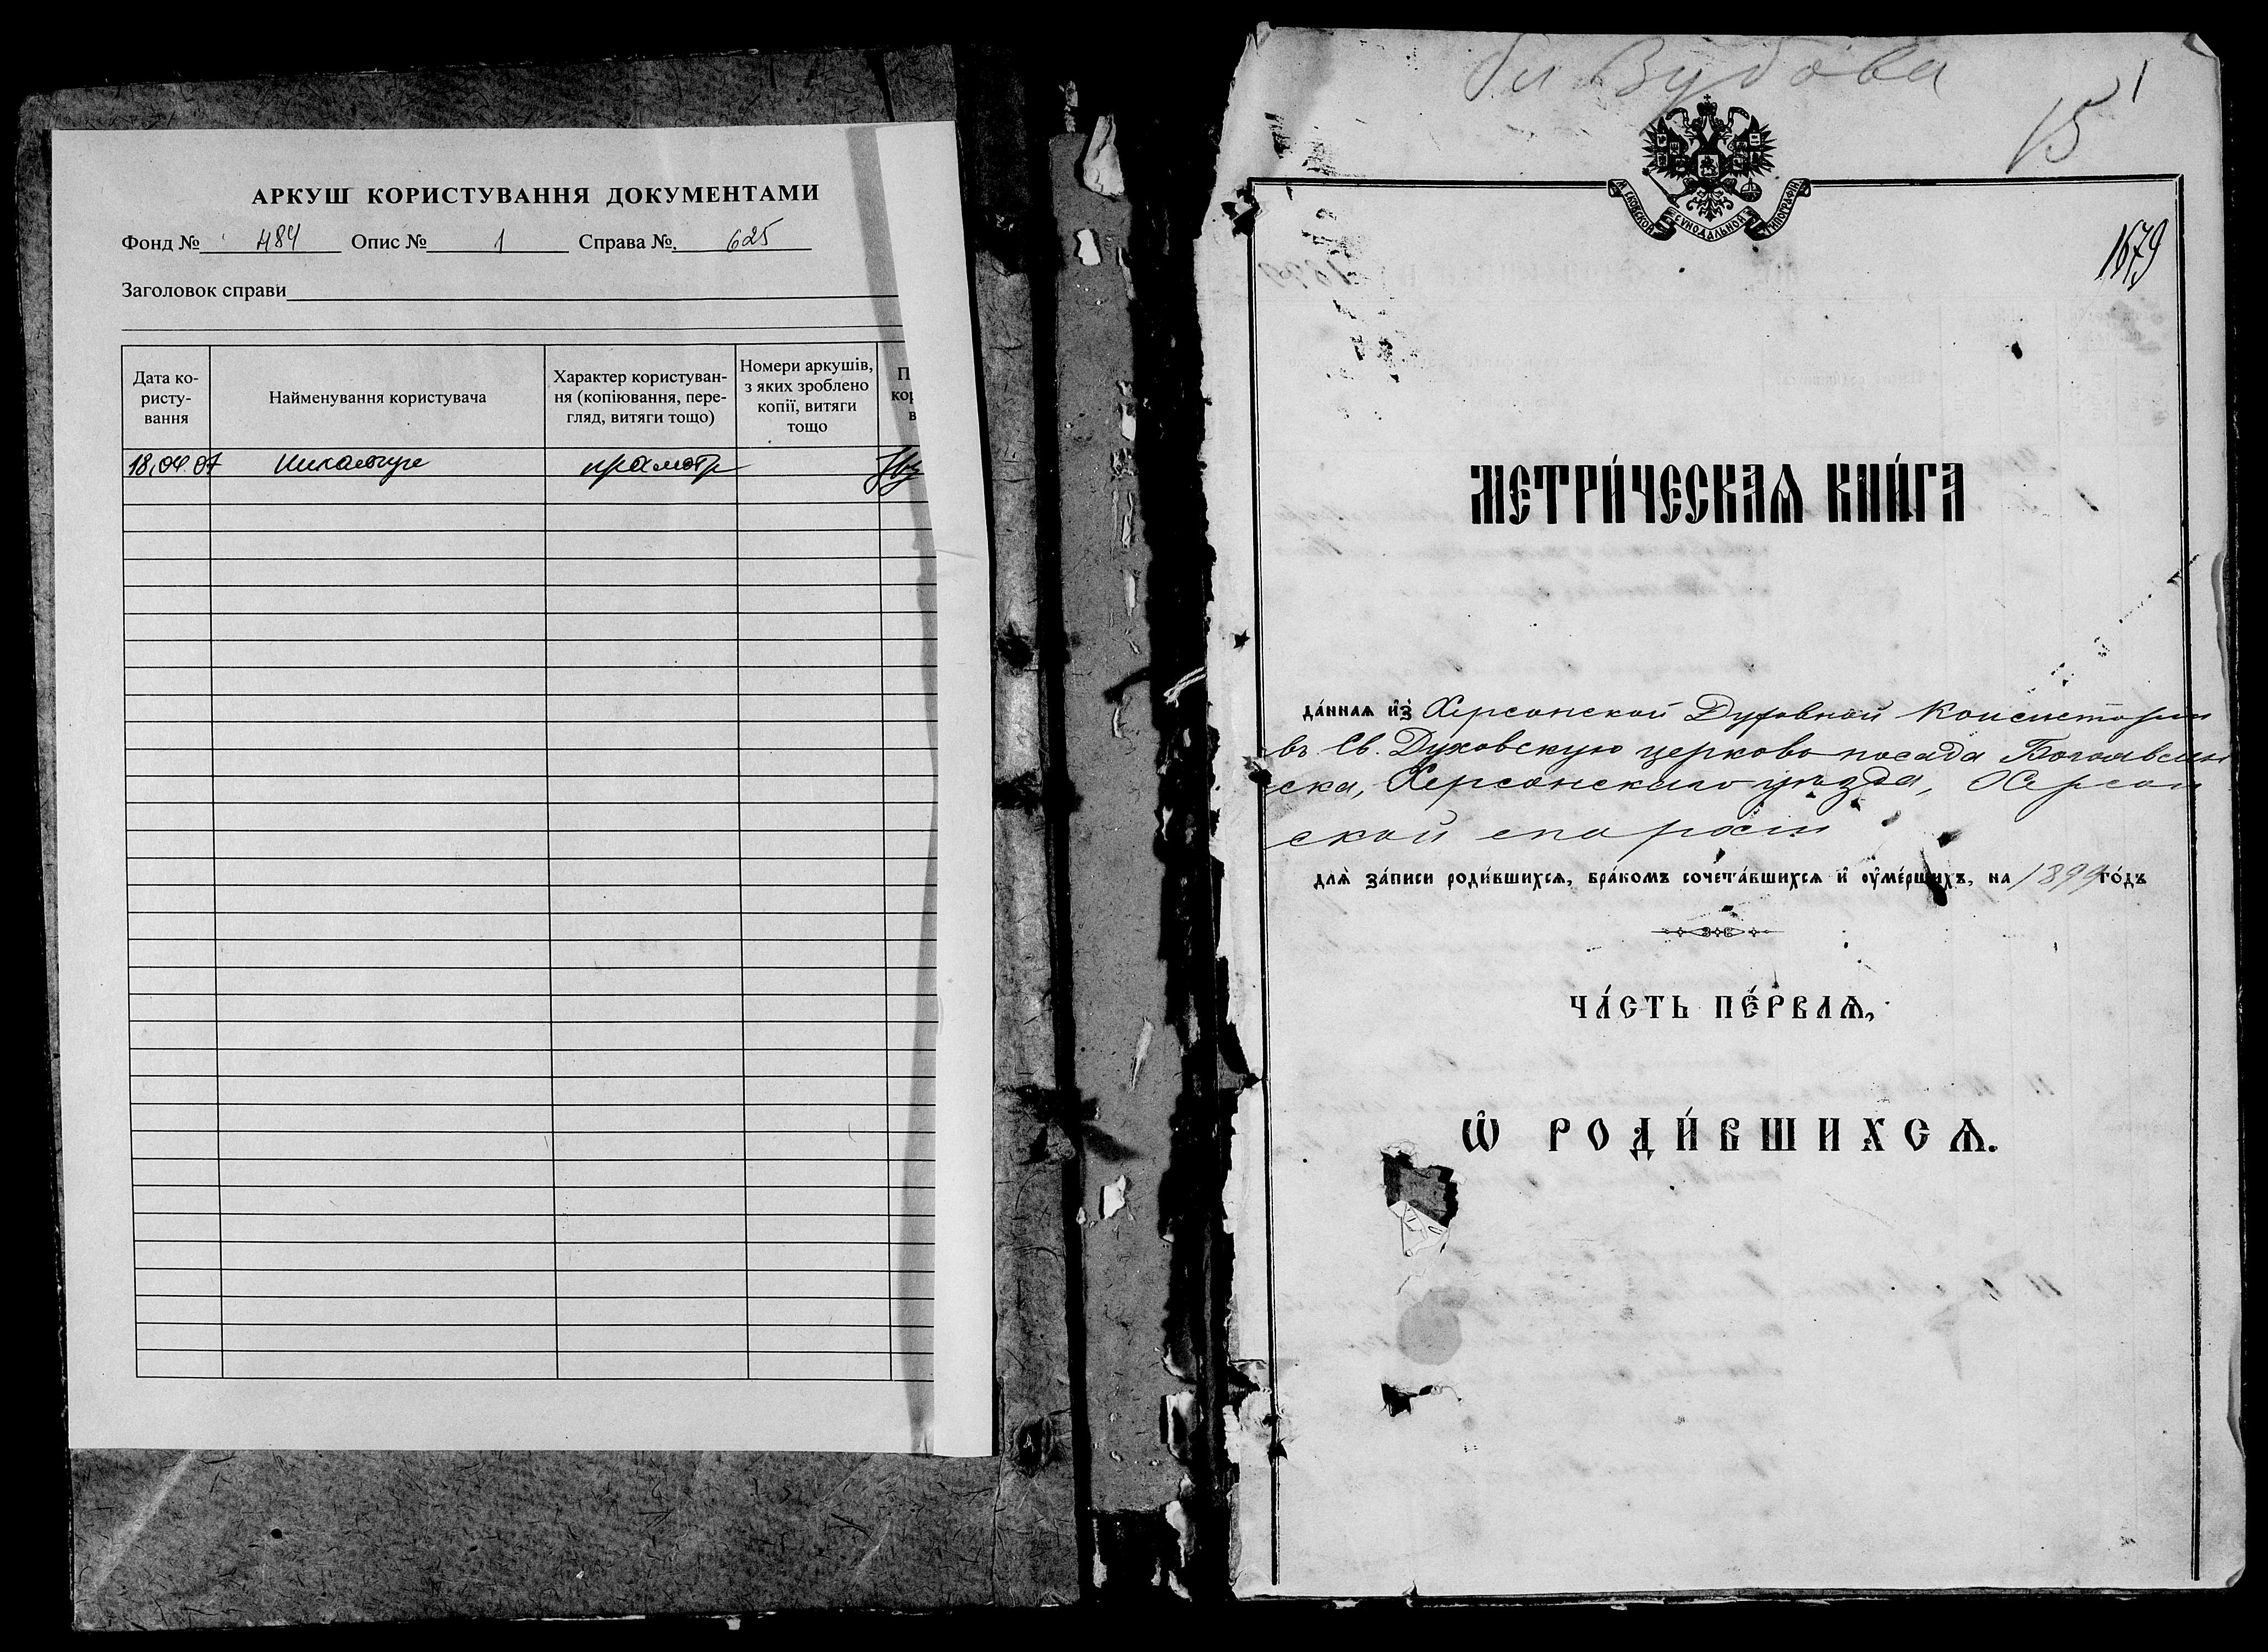 АРКУШ КОРИСТУВАННЯ ДОКУМЕНТАМИ
Фонд № 484 Опис № 1 Справа № 625
Заголовок справи
Дата ко-
ристу-
вання
Найменування користувача
Характер користуван-
ня (копіювання, пере-
гляд, витяги тощо)
Номери аркушів,
з яких зроблено
копії, витяги
тощо
П
кор
в
18.04.07 просмотр
15 1
МОСКОВСКОЙ СУНОДАЛЬНОЙ ТИПОГРАФІИ
1679
МЕТРИ́ЧЕСКАѦ КНИ́ГА
да́ннаѧ и҆з̾ Херсонской Духовной Консистории
въ Св. Духовскую церковь посада Богоявлен
ска, Херсонскаго уѣзда, Херсон
ской епархіи
длѧ̀ за́писи роди́вшихсѧ, бра́комъ сочета́вшихсѧ и҆ ᲂу҆ме́ршихъ, на 1899 го́дъ
ЧА́СТЬ ПЕ́РВАѦ,
Ѽ РОДИ́ВШИХСѦ.